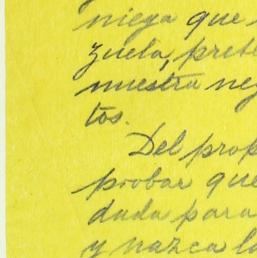 niega que
zuela, prete
nuestra neg
tos.
Del prop
probar que
dada para
y nazca la